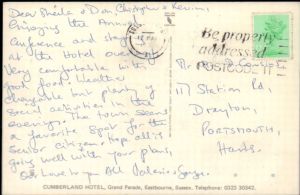 Dear Sheila & Don Christopher & Kevin:
Enjoying the Annual
Conference and stay
at the Hotel over
Very comfortable with
good food. Weather
changeable but plenty of
social activities in the
evening. The town seems
a favorite Spot for the
Senior citizens, hope all is
going well with your plans,
love to you All
Be properly
addressed
POSTCODE IT
Mr
117 Station Rd,
Drayton,
PORTSMOUTH,
Hants.
CUMBERLAND HOTEL, Grand Parade, Eastbourne, Sussex. Telephone: 0323 30342.